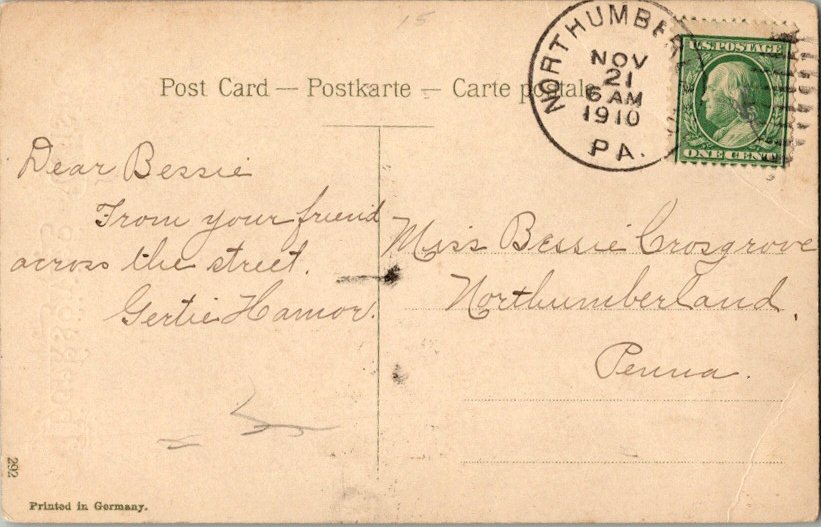 15
NORTHUMBER
NOV
21
6 AM
1910
PA.
U.S. POSTAGE
ONE CENT
Post Card — Postkarte — Carte postale
Dear Bessie
From your friend
across the street.
Gertie Hamor.
Miss Bessie Crosgrove
Northumberland,
Penna.
292
Printed in Germany.